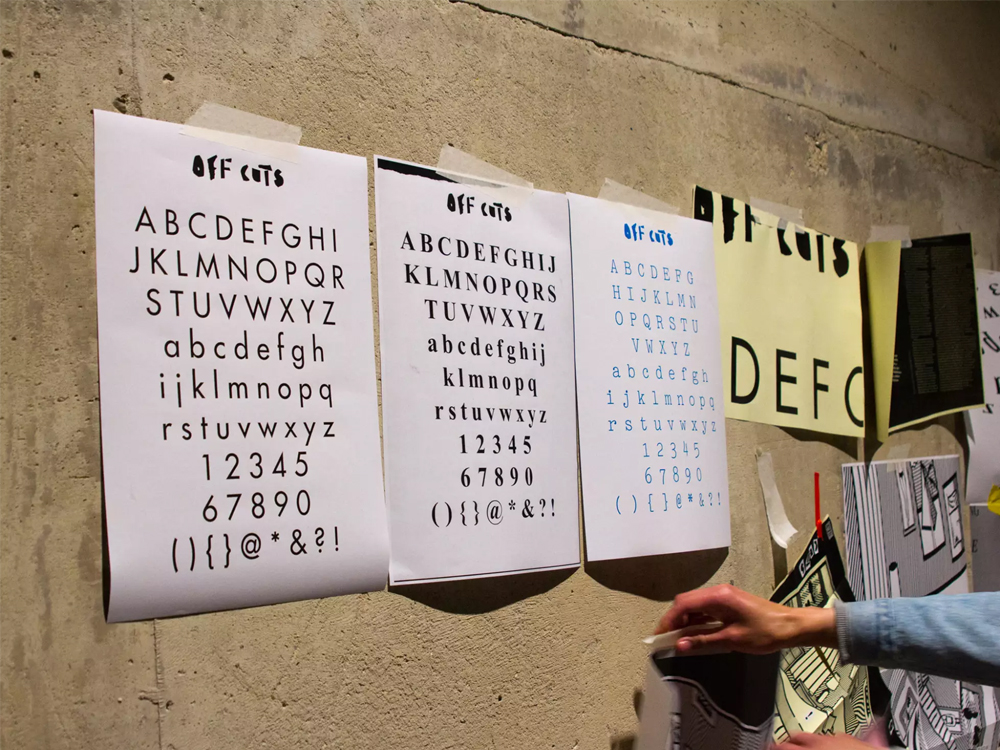 OFF CUTS
ABCDEFGHI
JKLMNOPQR
STUVWXYZ
abcdefgh
ijklmnopq
rstuvwxyz
12345
67890
(){}@*&?!
OFF CUTS
ABCDEFGHIJ
KLMNOPQRS
TUVWXYZ
abcdefghij
klmnopq
rstuvwxyz
12345
67890
(){}@*&?!
OFF CUTS
ABCDEFG
HIJKLMN
OPQRSTU
VWXYZ
abcdefgh
ijklmnopq
rstuvwxyz
12345
67890
(){}@*&?!
OFF CUTS
DEF